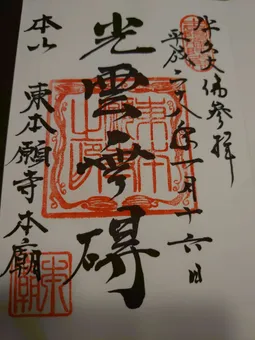 牛久大佛參拝
平成二八年一月十六日
光雲無碍
本山 東本願寺本廟